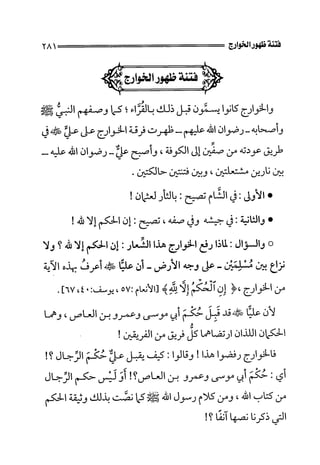 فتنة ظهور الخوارج ٢٨١
فتنة ظهور الخوارج
والخوارج كانوا يسمَّون قبل ذلك بالقُرَّاء ؛ كما وصفهم النبيُّ ﷺ
وأصحابه - رضوان الله عليهم - ظهرت فرقة الخوارج على عليٍّ ﵁ في
طريق عودته من صفِّين إلى الكوفة ، وأصبح عليٌّ - رضوان الله عليه -
بين نارين مشتعلتين ، وبين فتنتين حالكتين .
• الأولى : في الشَّام تصيح : بالثأر لعثمان !
• والثانية : في جيشه وفي صفه ، تصيح : إن الحكم إلا لله !
○ والسؤال : لماذا رفع الخوارج هذا الشِّعار : إن الحكم إلا لله ؟ ولا
نزاع بين مُسْلِمَيْن - على وجه الأرض - أن عليًّا ﵁ أعرفُ بهذه الآية
من الخوارج ، ﴿ إِنِ ٱلْحُكْمُ إِلَّا لِلَّهِ ﴾ [الأنعام : ٥٧ ، يوسف : ٤٠ ، ٦٧] .
لأن عليًّا ﵁ قد قَبِلَ حُكْمَ أبي موسى وعمرو بن العاص ، وهما
الحكمان اللذان ارتضاهما كلُّ فريق من الفريقين !
فالخوارج رفضوا هذا ! وقالوا : كيف يقبل عليٌّ حُكْمَ الرِّجال ؟!
أي : حُكْمَ أبي موسى وعمرو بن العاص ؟! أَوَ لَيْس حكم الرِّجال
من كتاب الله ، ومن كلام رسول الله ﷺ كما نصَّت بذلك وثيقة الحكم
التي ذكرنا نصها آنفًا ؟!